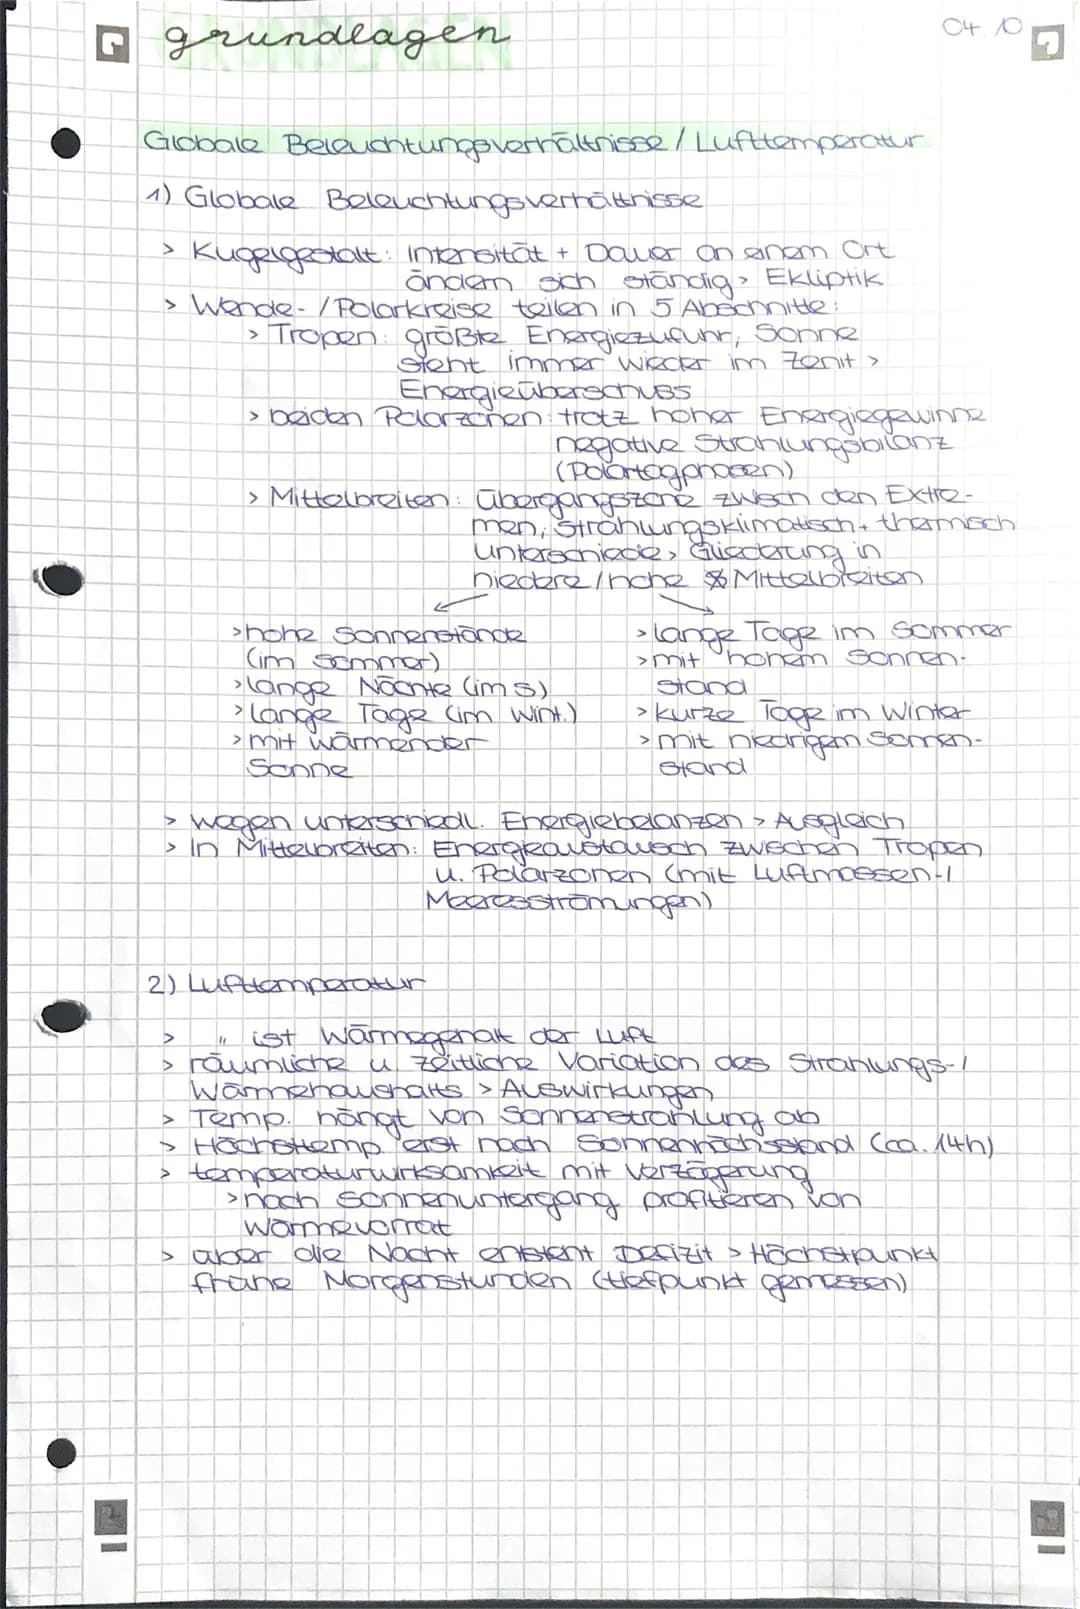 grundlagen
04.10
Globale Beleuchtungsverhältnisse / Lufttemperatur
1) Globale Beleuchtungsverhältnisse
> Kugelgestalt: Intensität + Dauer an einem Ort
ändern sich ständig > Ekliptik
> Wende- / Polarkreise teilen in 5 Abschnitte:
> Tropen: größte Energiezufuhr, Sonne
steht immer wieder im Zenit >
Energieüberschuss
> beiden Polarzonen: trotz hoher Energiegewinne
negative Strahlungsbilanz
(Polartagphasen)
> Mittelbreiten: Übergangszone zwisch den Extre-
men, strahlungsklimatisch + thermisch
unterschiede > Gliederung in
niedere / hohe Mittelbreiten
> hohe Sonnenstände
(im Sommer)
> lange Nächte (im S)
> lange Tage (im Wint.)
> mit wärmender
Sonne
> lange Tage im Sommer
> mit hohem Sonnen-
stand
> kurze Tage im Winter
> mit niedrigem Sonnen-
stand
> wegen unterschiedl. Energiebelanzen > Ausgleich
> In Mittelbreiten: Energieaustausch zwischen Tropen
u. Polarzonen (mit Luftmassen-/
Meeresströmungen)
2) Lufttemperatur
> " ist Wärmegehalt der Luft
> räumliche u. zeitliche Variation des Strahlungs-/
Wärmehaushalts > Auswirkungen
> Temp. hängt von Sonnenstrahlung ab
> Höchsttemp. erst nach Sonnenhöchsstand (ca. 14h)
> temperaturwirksamkeit mit Verzögerung
> nach Sonnenuntergang profitieren von
Wärmevorrat
> aber die Nacht entsteht Defizit > Höchstpunkt
frühe Morgenstunden (tiefpunkt gemessen)